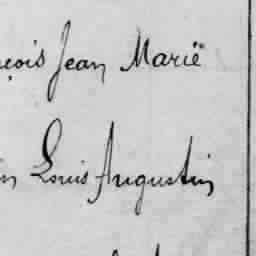 çois Jean Marië
in Louis Augustin